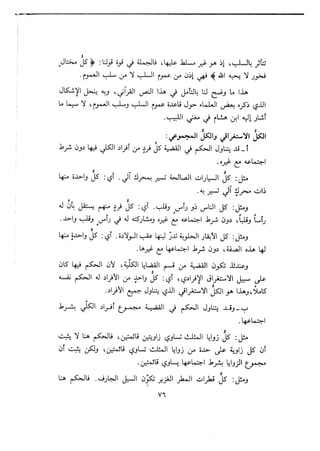 تتأثر بالسلب، إذ هو غير مسلط عليها، فالجملة في قوة قولنا: ﴿ كلُّ مختال
فخور لا يحبه الله ﴾ فهي إذن من عموم السلب لا من سلب العموم.
هذا ما وضح لنا بالتأمل في هذا النص القرآني، وبه ينحل الإشكال
الذي ذكره بعض العلماء حول قاعدة عموم السلب وسلب العموم، لا سيما ما
أشار إليه ابن هشام في مغني اللبيب.
الكلّ الاستغراقي والكلّ المجموعي:
أ - قد يتناول الحكم في القضية كلّ فردٍ من أفراد الكلي فيها دون شرط
اجتماعه مع غيره.
مثل: كلُّ السيارات الصالحة تسير بمحرك آلي. أي: كلُّ واحدة منها
ذات محركٍ آلي تسير به.
ومثل: كلُّ الناس ذو رأس وقلب. أي: كلُّ فردٍ منهم يستقل بأن له
رأساً وقلباً، دون شرط اجتماعه مع غيره ومشاركته له في رأسٍ وقلبٍ واحد.
ومثل: كلُّ الأبقار الحلوبة تدرُّ لبنها عقب الولادة. أي: كلُّ واحدةٍ منها
لها هذه الصفة، دون شرط اجتماعها مع غيرها.
وعندئذ تكون القضية من قسم القضايا الكلّية، لأن الحكم فيها كان
على سبيل الاستغراق الإفرادي، أي: كلُّ واحدٍ من الأفراد له الحكم نفسه
كاملاً، وهذا هو الكلُّ الاستغراقي الذي يتناول جميع الأفراد.
ب - وقد يتناول الحكم في القضية مجموع أفراد الكلّي بشرط
اجتماعها.
مثل: كلُّ زوايا المثلث تساوي زاويتين قائمتين، فالحكم هنا لا يثبت
أن كل زاوية على حدة من زوايا المثلث تساوي قائمتين، ولكن يثبت أن
مجموع الزوايا بشرط اجتماعها يساوي قائمتين.
ومثل: كلُّ قطرات المطر الغزير تكوّن السيل الجارف. فالحكم هنا
٧٦